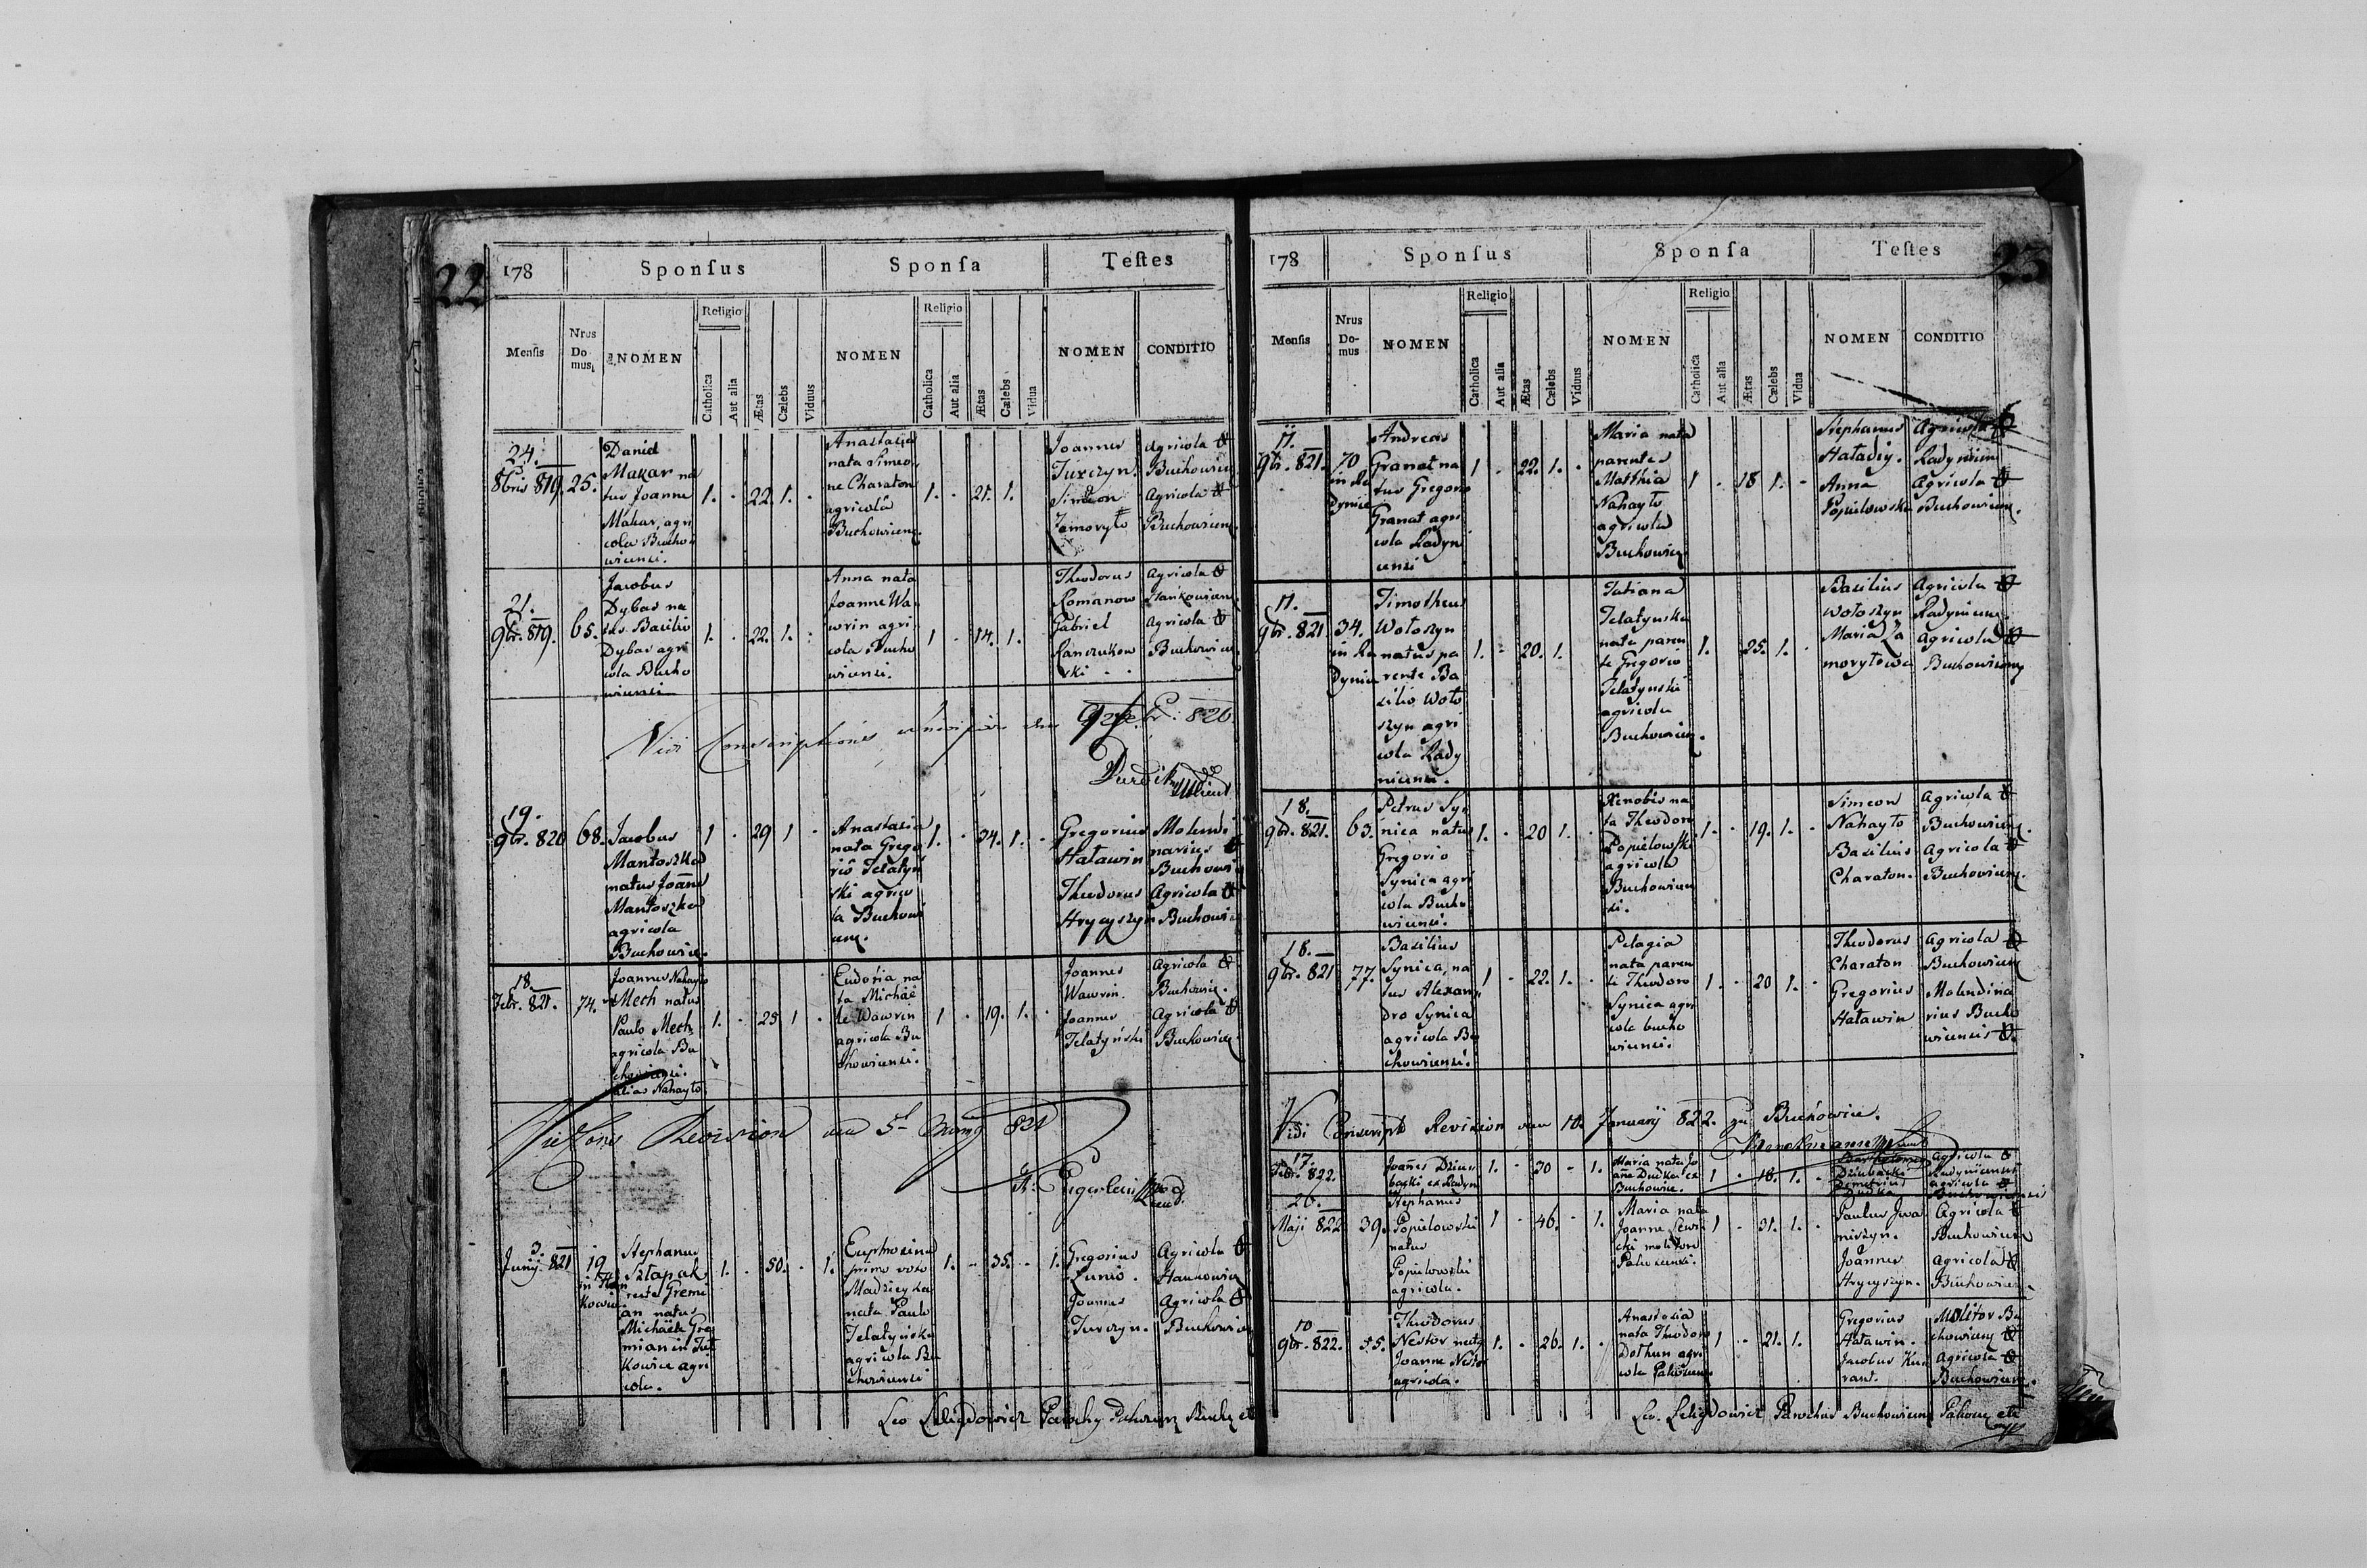 22
178
Sponſus
Sponſa
Teſtes
Menſis
Nrus
Do
mus
NOMEN
Religio
Catholica
Aut alia
Ætas
Cælebs
Viduus
NOMEN
Religio
Catholica
Aut alia
Ætas
Cælebs
Vidua
NOMEN
CONDITIO
24.
8bris 819.
25.
Daniel
Makar na
tus Joanne
Makar, agri
cola Bucho
wiensi.
1. · 22. 1. ·
Anastasia
nata Simeo
ne Charaton
agricola
Buchowiens.
1. · 21. 1.
Joannes
Jurczyn.
Simeon
Zamoryto
Agricola
Buchowien
Agricola
Buchowiens.
21.
9br. 819.
65.
Jacobus
Dybas na
tus Basilio
Dybas agri
cola Bucho
wiensi
1. · 22. 1. ·
Anna nata
Joanne Wa
wrin agri
cola Bucho
wiensi.
1 · 14. 1.
Theodorus
Romanow
Gabriel
Lanczukow
ski
Agricola
Hankowiens
Agricola
Buchowien.
Vidi Conscriptions 820.
19.
9br. 820
68.
Jacobus
Mantoszka
natus Joane
Mantoszka
agricola
Buchowie.
1 · 29 1 ·
Anastasia
nata Grego
rio Telatyn
ski agrico
la Buchowi
ens.
1. · 34. 1. ·
Gregorius
Hatawin
Theodorus
Hrycyszyn
Molendi
narius
Buchowi
Agricola
Buchowi
18.
Febr. 821.
74.
Joannes Nahayto
Mech natus
Paulo Mech
agricola Bu
chowiensi.
alias Nahayto
1. · 23 1 ·
Eudoxia na
ta Michae
le Wawren
agricola Bu
chowiensi.
1 · 19. 1. ·
Joannes
Wawrin.
Joannes
Telatyński
Agricola
Buchowie.
Agricola
Buchowien
Revision 5t 821
3.
Junij 821
19
in Han
kowice
Stephanus
Sztapak
recte Gremi
an natus
Michaele Gre
mian in Tut
kowice agri
cola.
1. · 50. · 1.
Euphrosina
primo voto
Madzieyka
nata Paulo
Telatyński
agricola Bu
chowiensi
1. · 35. · 1.
Gregorius
Lunio.
Joannes
Jurczyn.
Agricola
Hankowien
Agricola
Buchowien
Leo Leligdowicz
23
178
Sponſus
Sponſa
Teſtes
Menſis
Nrus
Do-
mus
NOMEN
Religio
Catholica
Aut alia
Ætas
Cælebs
Viduus
NOMEN
Religio
Catholica
Aut alia
Ætas
Cælebs
Vidua
NOMEN
CONDITIO
11.
9br. 821.
70
in Ra
dynice
Andreas
Granat na
tus Gregorio
Granat agri
cola Radyni
ensi
1 · 22. 1. ·
Maria nata
parente
Matthia
Nahayto
agricola
Buchowien
1 · 18 1. ·
Stephanus
Hatadiy.
Anna
Popielowska
Agricola
Radyniens
Agricola
Buchowiens.
11.
9br. 821
34.
in Ra
dynice
Timotheus
Wotoszyn
natus pa
rente Ba
silio Woto
szyn agri
cola Rady
niensi.
1. · 20. 1.
Tatiana
Telatynska
nata paren
te Gregorio
Telatynski
agricola
Buchowien.
1. · 25. 1. ·
Basilius
Wotoszyn
Maria Za
morytowa
Agricola
Radyniens
Agricola
Buchowiens
18.
9br. 821.
63.
Petrus Sy
nica natus
Gregorio
Synica agri
cola Bucho
wiensi.
1. · 20 1. ·
Xenobia na
ta Theodoro
Popielowski
agricola
Buchowien
si.
1. · 19. 1. ·
Simeon
Nahayto
Basilius
Charaton.
Agricola
Buchowiens.
Agricola
Buchowiens.
18.
9br. 821
77.
Basilius
Synica, na
tus Alexan
dro Synica
agricola Bu
chowiensi.
1 · 22. 1. ·
Pelagia
nata paren
te Theodoro
Synica agri
cola bucho
wiensi.
1. · 20 1. ·
Theodorus
Charaton
Gregorius
Hatawin
Agricola
Buchowiens
Molendina
rius Bucho
wiensis
Vidi Conscript Revision 10. January 822. zu Buchowice.
17.
Febr. 822.
Joañes Dziu
backi ex Radyn
1. · 30 · 1.
Maria nata Jo
añe Dudka ex
Buchowice.
1 · 18. 1. ·
Bartholomeus
Dziubacki
Demetrius
Dudka
Agricola
Radyniensis
agricola
Buchowiensis
26.
Maji 822
39.
Stephanus
Popielowski
natus
Popielowski
agricola.
1 · 46. · 1.
Maria nata
Joanne Lewi
cki molitore
Pakosensi.
1 · 31. 1. ·
Paulus Iwa
niszyn.
Joannes
Hrycyszyn.
Agricola
Buchowiens
Agricola
Buchowien.
10
9br. 822.
55.
Theodorus
Nestor natus
Joanne Nestor
agricola.
1. · 26. 1. ·
Anastasia
nata Theodoro
Dothun agri
cola Pakosiens
1 · 21. 1.
Gregorius
Hatawin.
Jacobus Ku
rant.
Molitor Bu
chowiens
Agricola
Buchowiens.
Leo. Leligdowicz Parochus Buchowiens Pakosc etc